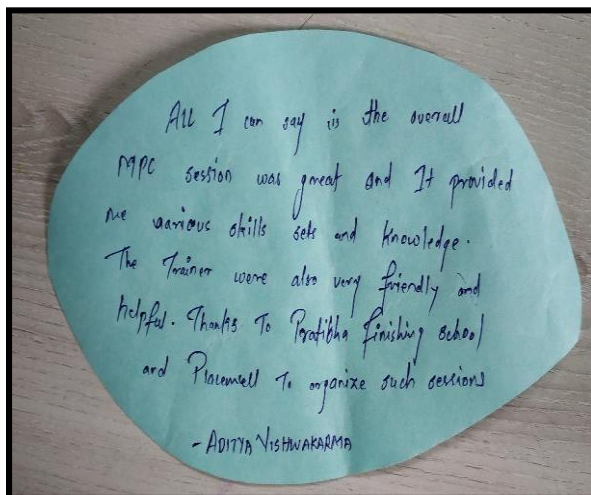 All I can say is the overall
MPC session was great and It provided
me various skills sets and knowledge.
The Trainer were also very friendly and
helpful. Thanks To Pratibha finishing school
and Placewell To organize such sessions
- ADITYA VISHWAKARMA